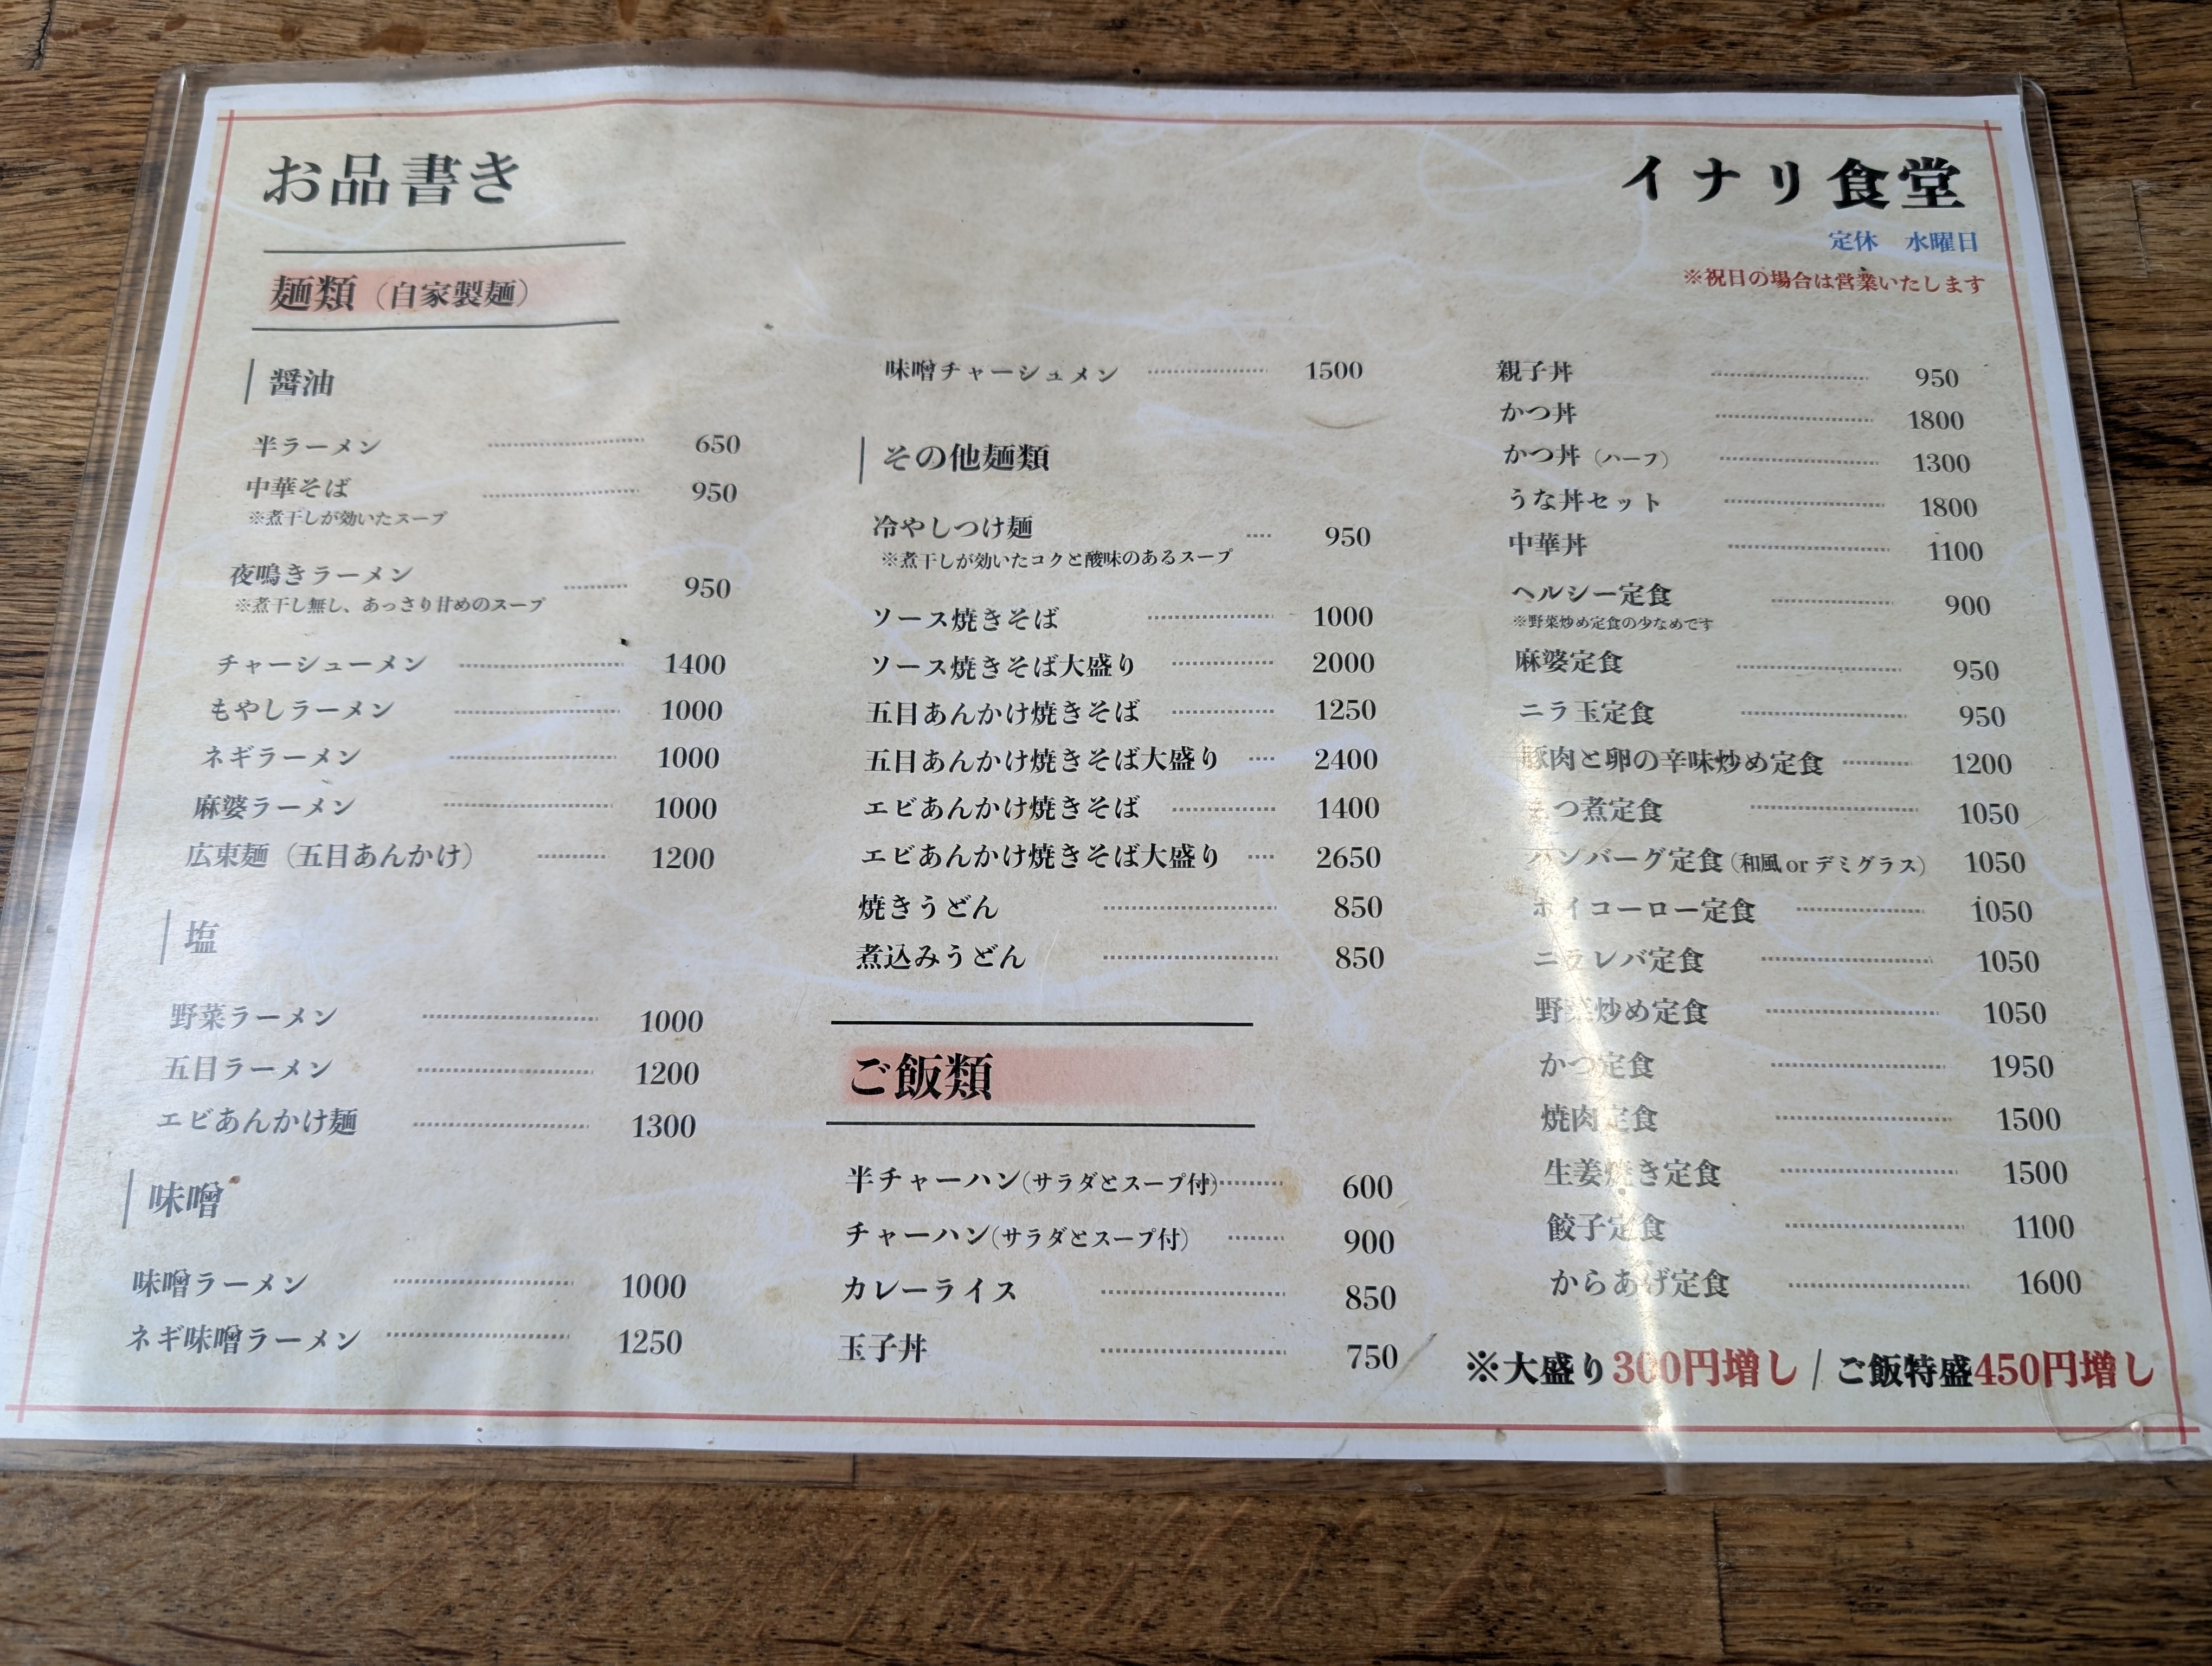 お品書き
イナリ食堂
定休 水曜日
※祝日の場合は営業いたします
麺類（自家製麺）
醤油
半ラーメン 650
中華そば 950
※煮干しが効いたスープ
夜鳴きラーメン 950
※煮干し無し、あっさり甘めのスープ
チャーシューメン 1400
もやしラーメン 1000
ネギラーメン 1000
麻婆ラーメン 1000
広東麺（五目あんかけ） 1200
塩
野菜ラーメン 1000
五目ラーメン 1200
エビあんかけ麺 1300
味噌
味噌ラーメン 1000
ネギ味噌ラーメン 1250
味噌チャーシュメン 1500
その他麺類
冷やしつけ麺 950
※煮干しが効いたコクと酸味のあるスープ
ソース焼きそば 1000
ソース焼きそば大盛り 2000
五目あんかけ焼きそば 1250
五目あんかけ焼きそば大盛り 2400
エビあんかけ焼きそば 1400
エビあんかけ焼きそば大盛り 2650
焼きうどん 850
煮込みうどん 850
ご飯類
半チャーハン(サラダとスープ付) 600
チャーハン(サラダとスープ付) 900
カレーライス 850
玉子丼 750
親子丼 950
かつ丼 1800
かつ丼（ハーフ） 1300
うな丼セット 1800
中華丼 1100
ヘルシー定食 900
※野菜炒め定食の少なめです
麻婆定食 950
ニラ玉定食 950
豚肉と卵の辛味炒め定食 1200
もつ煮定食 1050
ハンバーグ定食（和風 or デミグラス） 1050
ホイコーロー定食 1050
ニラレバ定食 1050
野菜炒め定食 1050
かつ定食 1950
焼肉定食 1500
生姜焼き定食 1500
餃子定食 1100
からあげ定食 1600
※大盛り300円増し / ご飯特盛450円増し